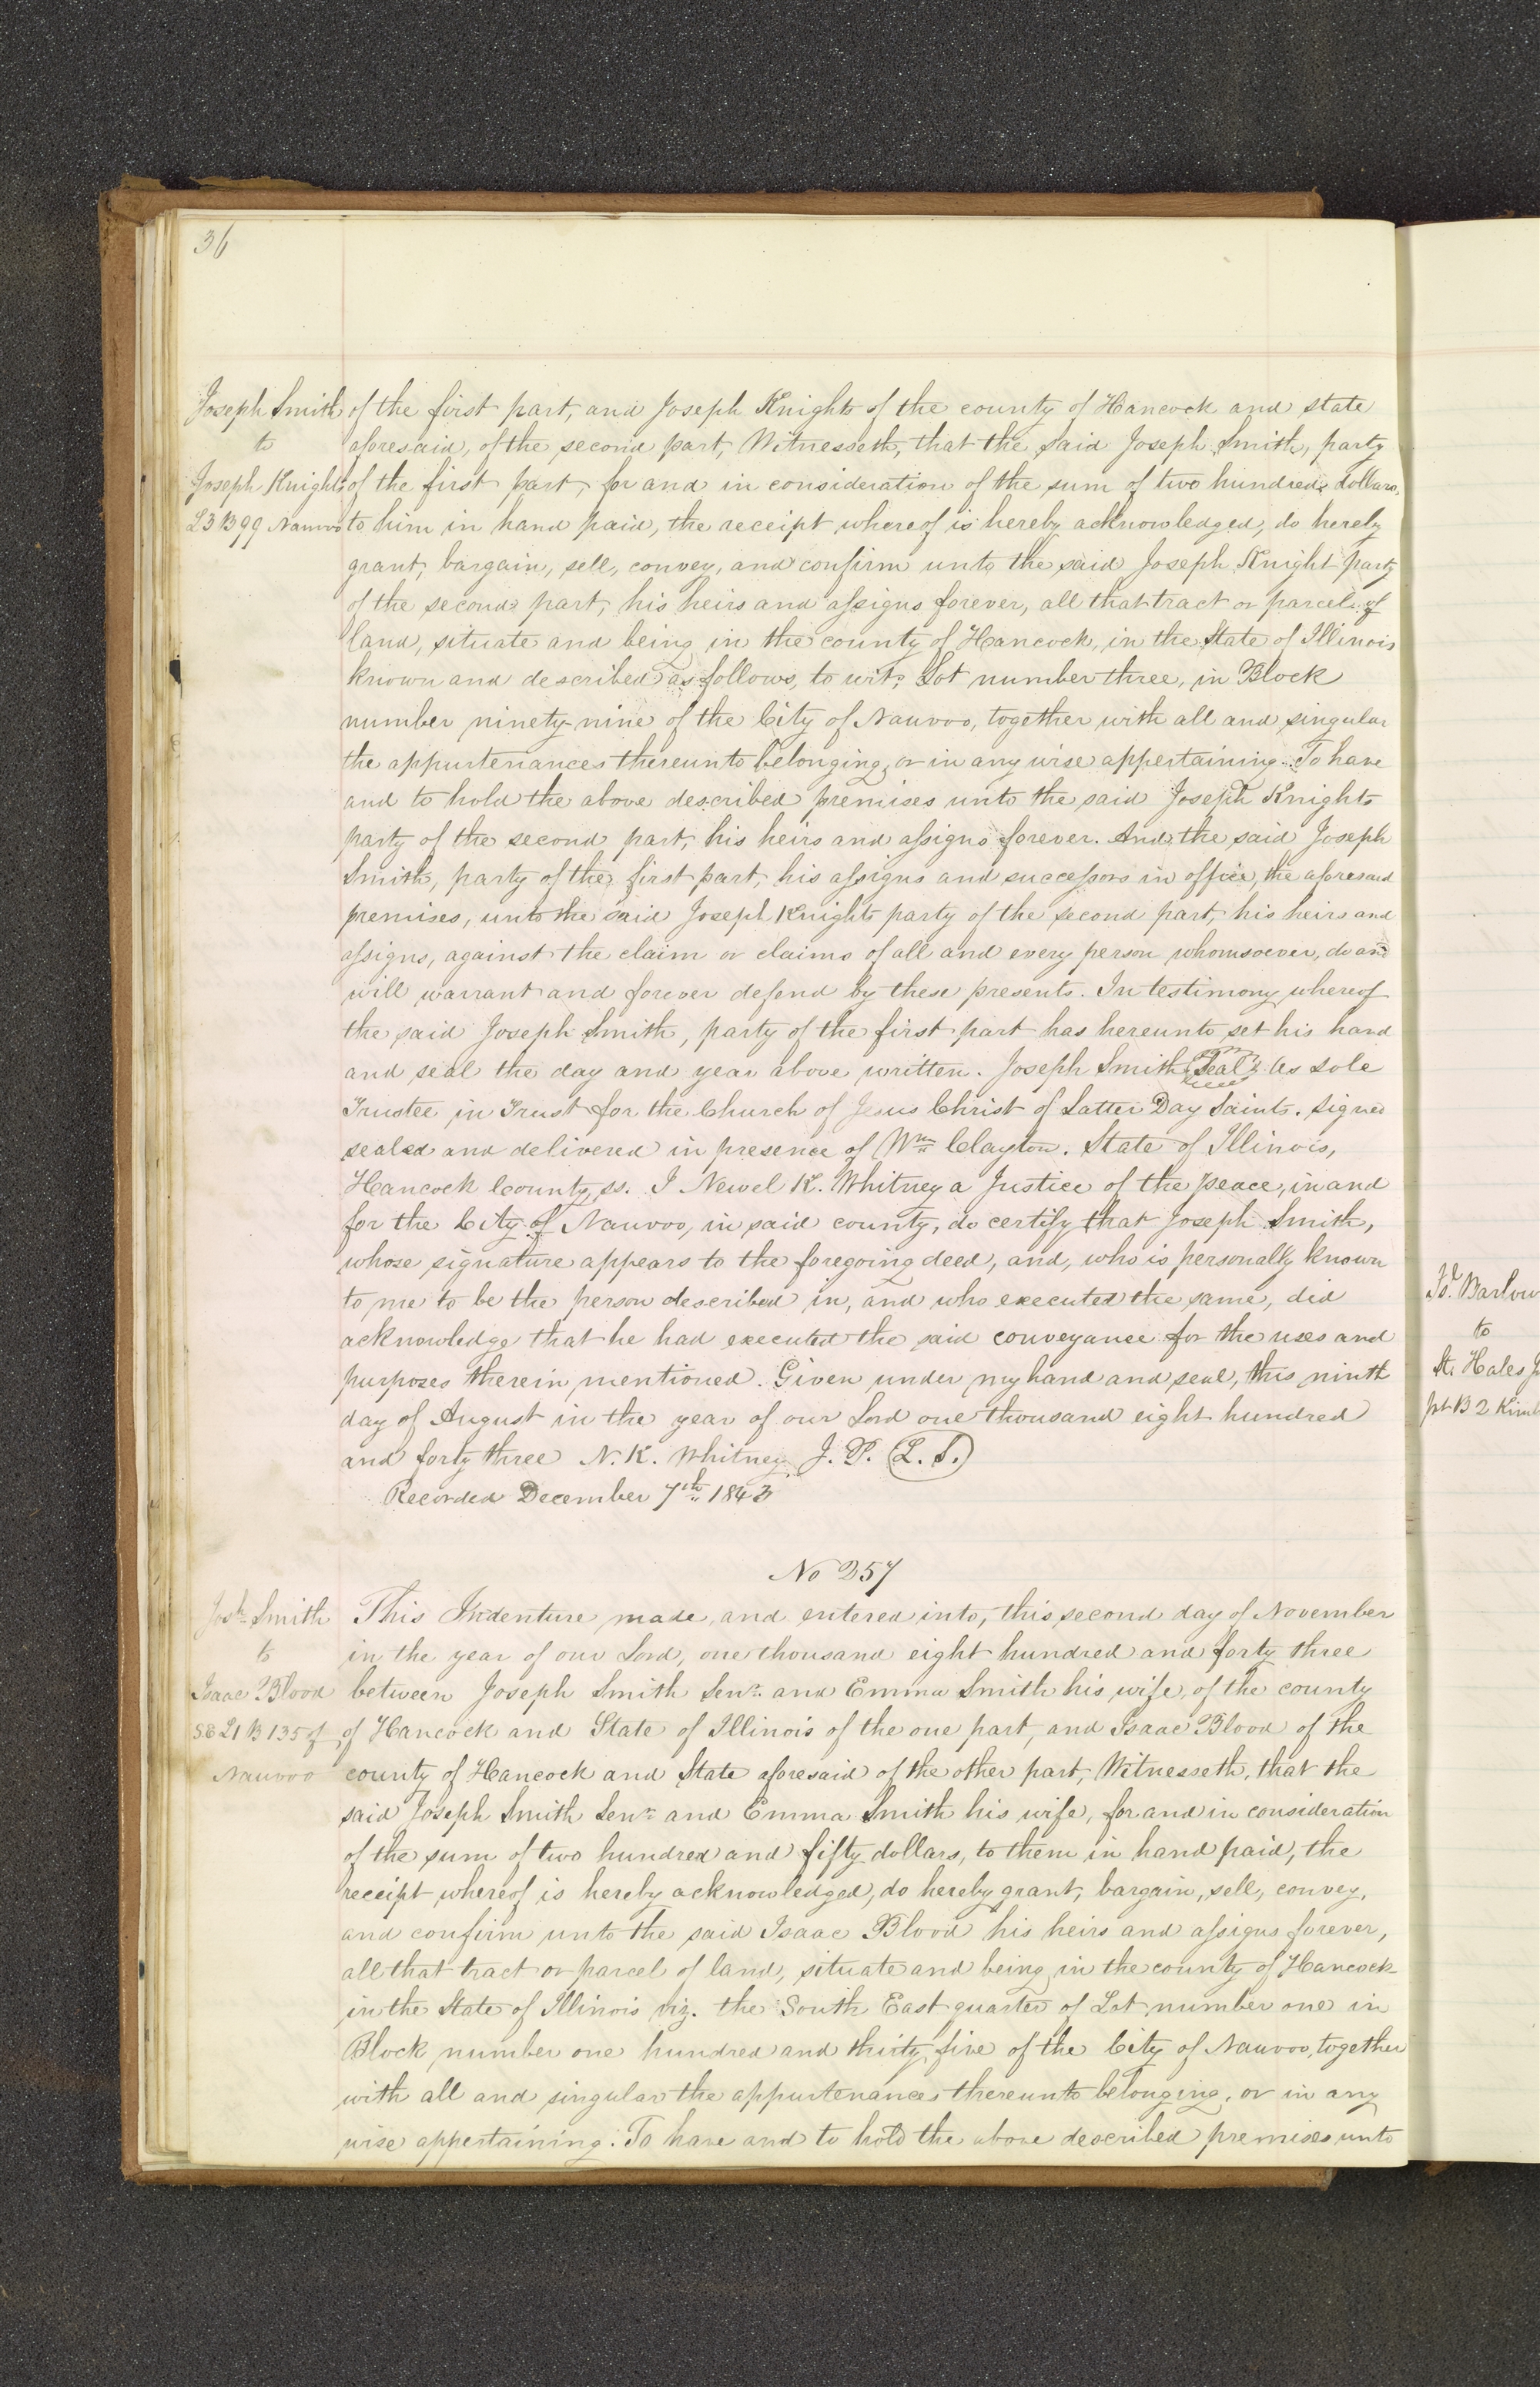 36
Joseph Smith
to
Joseph Knight
L3 B99 Nauvoo
of the first part, and Joseph Knight of the county of Hancock and state
aforesaid, of the second part, Witnesseth, that the said Joseph Smith, party
of the first part, for and in consideration of the sum of two hundred dollars,
to him in hand paid, the receipt whereof is hereby acknowledged, do hereby
grant, bargain, sell, convey, and confirm unto the said Joseph Knight party
of the second part, his heirs and assigns forever, all that tract or parcel of
land, situate and being in the county of Hancock, in the State of Illinois
known and described as follows, to wit; Lot number three, in Block
number ninety-nine of the City of Nauvoo, together with all and singular
the appurtenances thereunto belonging, or in any wise appertaining. To have
and to hold the above described premises unto the said Joseph Knight
party of the second part, his heirs and assigns forever. And the said Joseph
Smith, party of the first part, his assigns and successors in office, the aforesaid
premises, unto the said Joseph Knight party of the second part, his heirs and
assigns, against the claim or claims of all and every person whomsoever, do and
will warrant and forever defend by these presents. In testimony whereof
the said Joseph Smith, party of the first part has hereunto set his hand
and seal the day and year above written. Joseph Smith Seal As sole
Trustee in Trust for the Church of Jesus Christ of Latter Day Saints. Signed
sealed and delivered in presence of Wm Clayton. State of Illinois,
Hancock County, ss. I Newel K. Whitney a Justice of the peace, in and
for the City of Nauvoo, in said county, do certify that Joseph Smith,
whose signature appears to the foregoing deed, and, who is personally known
to me to be the person described in, and who executed the same, did
acknowledge that he had executed the said conveyance for the uses and
purposes therein mentioned. Given under my hand and seal, this ninth
day of August in the year of our Lord one thousand eight hundred
and forty three N. K. Whitney J. P. (L. S.)
Recorded December 7th 1843
No 257
Josh Smith
to
Isaac Blood
SE L1 B 135 of
Nauvoo
This Indenture made, and entered into, this second day of November
in the year of our Lord, one thousand eight hundred and forty three
between Joseph Smith Senr. and Emma Smith his wife, of the county
of Hancock and State of Illinois of the one part, and Isaac Blood of the
county of Hancock and State aforesaid of the other part, Witnesseth, that the
said Joseph Smith Senr. and Emma Smith his wife, for and in consideration
of the sum of two hundred and fifty dollars, to them in hand paid, the
receipt whereof is hereby acknowledged, do hereby grant, bargain, sell, convey,
and confirm unto the said Isaac Blood his heirs and assigns forever,
all that tract or parcel of land, situate and being in the county of Hancock
in the State of Illinois viz. the South East quarter of Lot number one in
Block number one hundred and thirty five of the City of Nauvoo, together
with all and singular the appurtenances thereunto belonging, or in any
wise appertaining. To have and to hold the above described premises unto
Barlow
to
Hales
pt B 2